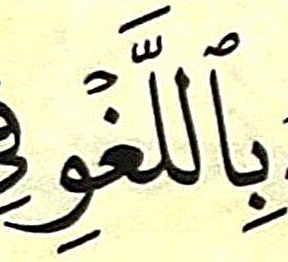 بِٱللَّغْوِ فِي